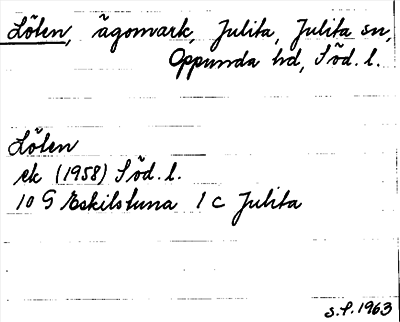 Lölen, ägomark, Julita, Julita sn,
Oppunda hd, Söd. l.
Lölen
ek (1958) Söd. l.
10 G Eskilstuna 1 c Julita
S.P. 1963